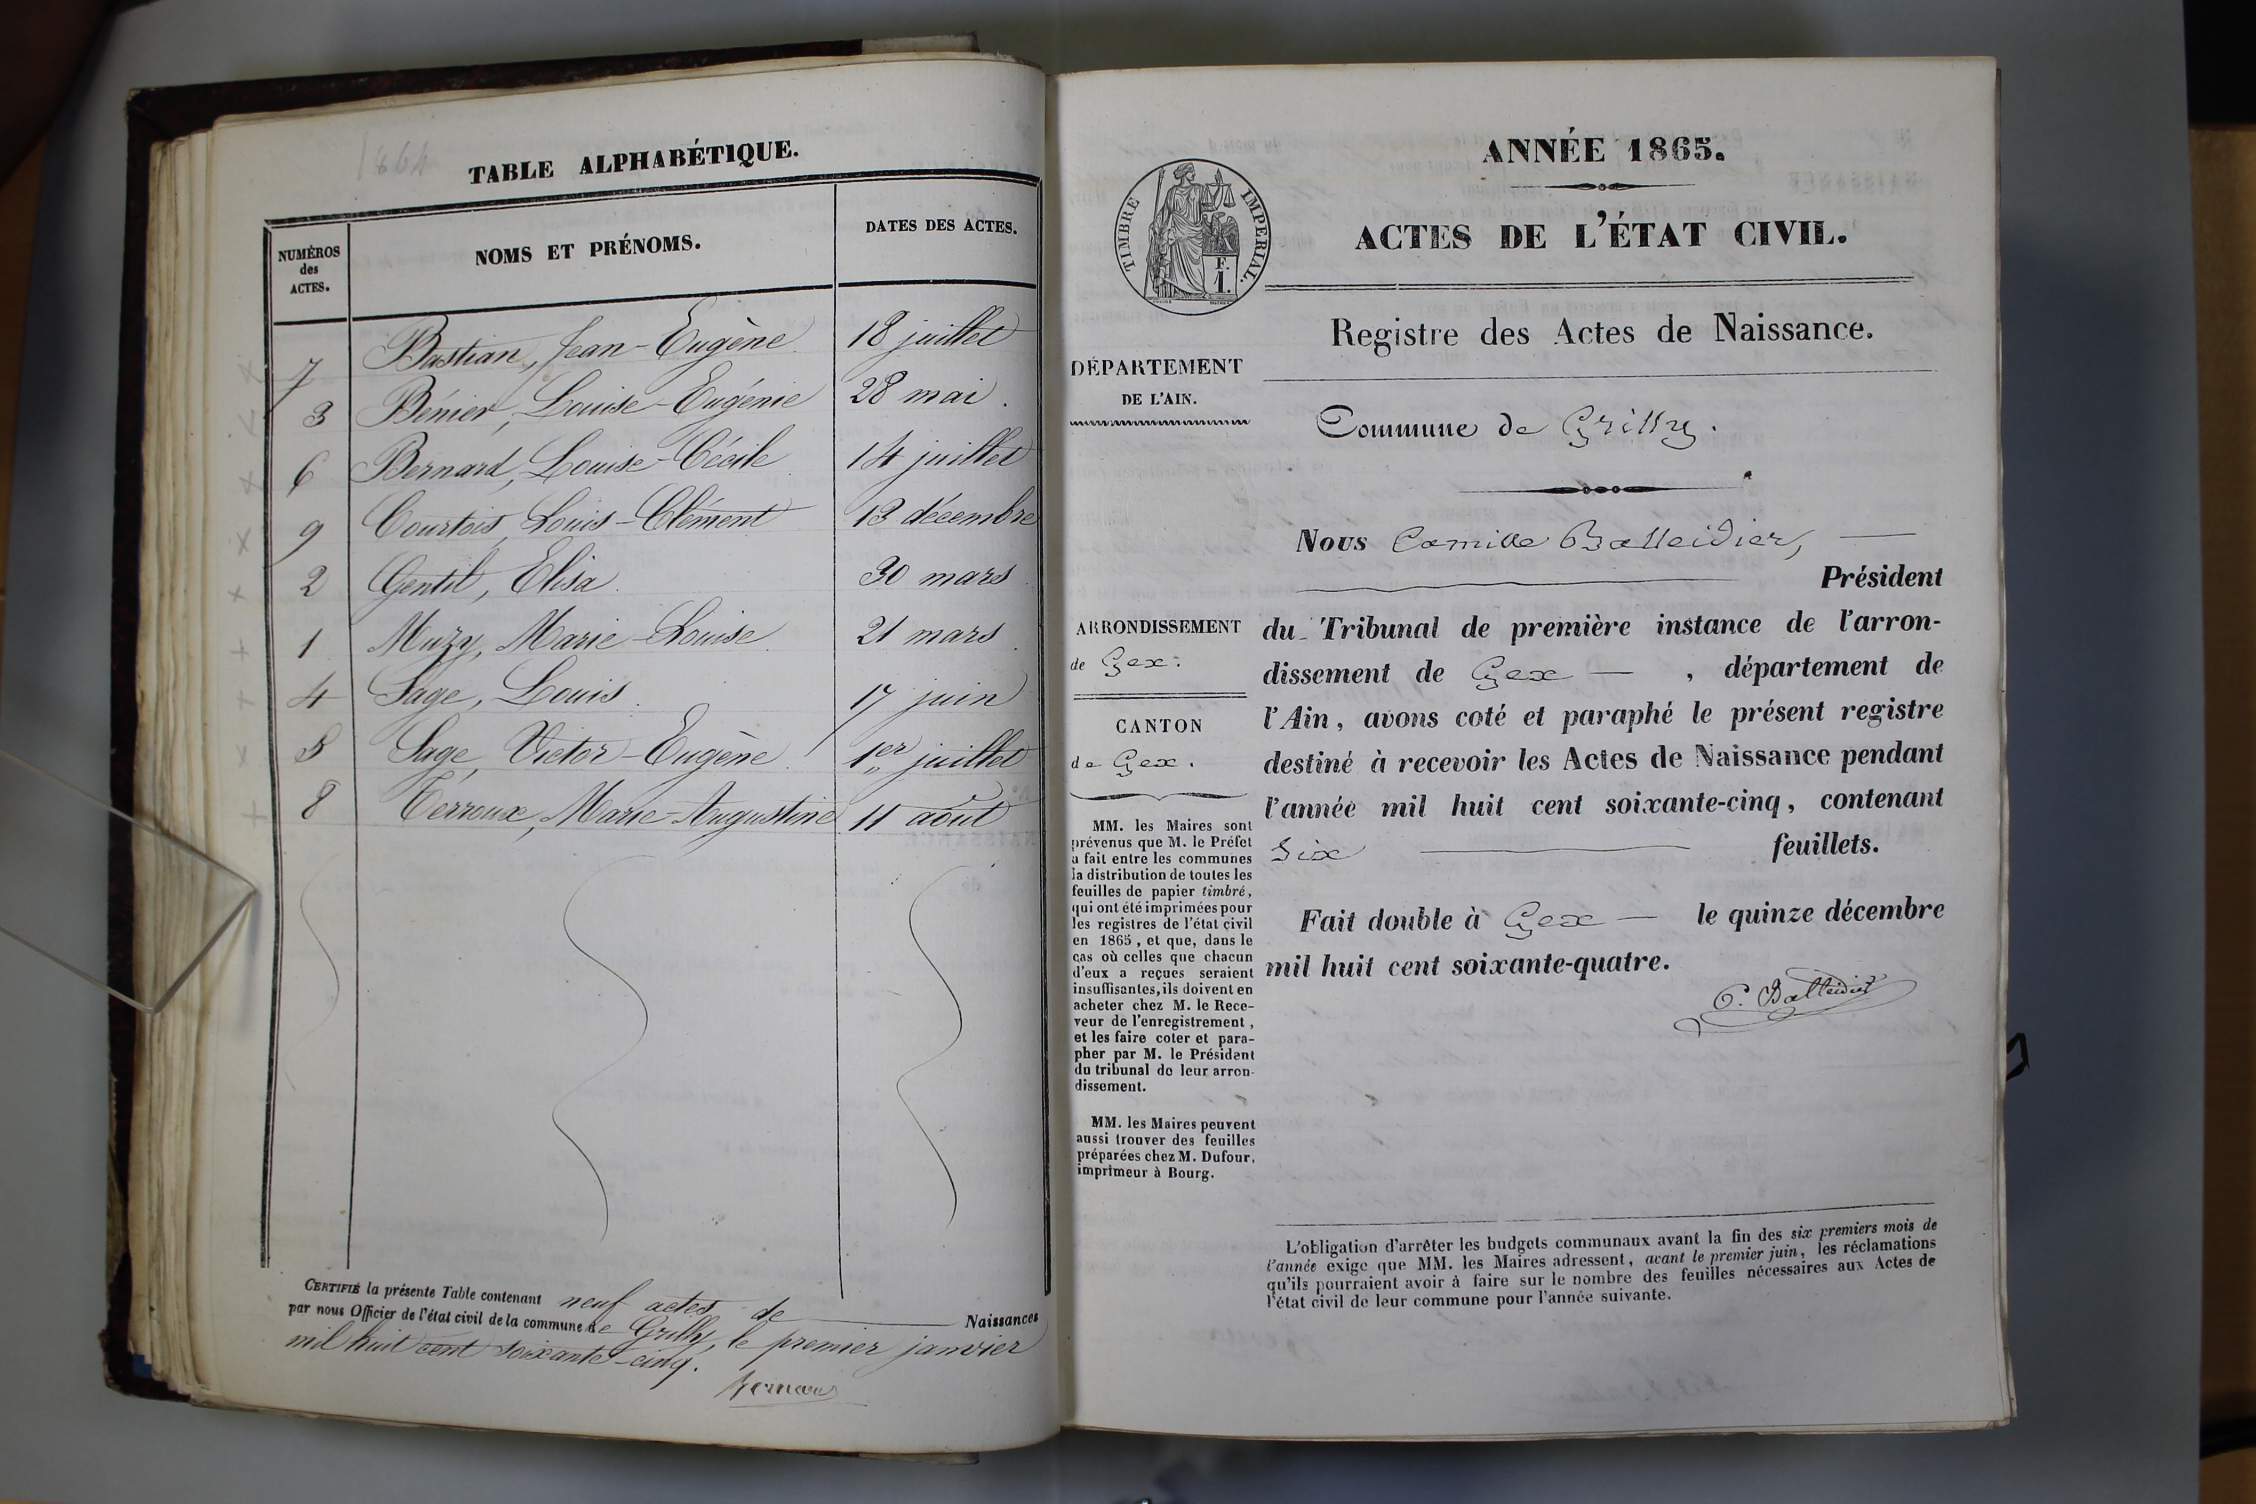 1864
TABLE ALPHABÉTIQUE.
NUMÉROS des ACTES. NOMS ET PRÉNOMS. DATES DES ACTES.
7 Bastian, Jean-Eugène 18 juillet
3 Bénier, Louise-Eugénie 28 mai.
6 Bernard, Louise-Cécile 14 juillet
9 Courtois, Louis-Clément 13 décembre
2 Gentil, Elisa. 30 mars
1 Muzy, Marie-Louise. 21 mars.
4 Sage, Louis. 17 juin
5 Sage, Victor-Eugène. 1er juillet
8 Terroux, Marie-Augustine 11 août
CERTIFIÉ la présente Table contenant neuf actes de Naissances
par nous Officier de l'état civil de la commune de Grilly, le premier janvier
mil huit cent soixante-cinq.
ANNÉE 1865.
ACTES DE L'ÉTAT CIVIL.
TIMBRE IMPERIAL.
F.
1.
Registre des Actes de Naissance.
DÉPARTEMENT
DE L'AIN.
Commune de Grilly.
ARRONDISSEMENT
de Gex.
CANTON
de Gex.
MM. les Maires sont
prévenus que M. le Préfet
a fait entre les communes
la distribution de toutes les
feuilles de papier timbré,
qui ont été imprimées pour
les registres de l'état civil
en 1865, et que, dans le
cas où celles que chacun
d'eux a reçues seraient
insuffisantes, ils doivent en
acheter chez M. le Rece-
veur de l'enregistrement,
et les faire coter et para-
pher par M. le Président
du tribunal de leur arron-
dissement.
MM. les Maires peuvent
aussi trouver des feuilles
préparées chez M. Dufour,
imprimeur à Bourg.
Nous Camille Balleidier,
Président
du Tribunal de première instance de l'arron-
dissement de Gex, département de
l'Ain, avons coté et paraphé le présent registre
destiné à recevoir les Actes de Naissance pendant
l'année mil huit cent soixante-cinq, contenant
six feuillets.
Fait double à Gex le quinze décembre
mil huit cent soixante-quatre.
C. Balleidier
L'obligation d'arrêter les budgets communaux avant la fin des six premiers mois de
l'année exige que MM. les Maires adressent, avant le premier juin, les réclamations
qu'ils pourraient avoir à faire sur le nombre des feuilles nécessaires aux Actes de
l'état civil de leur commune pour l'année suivante.